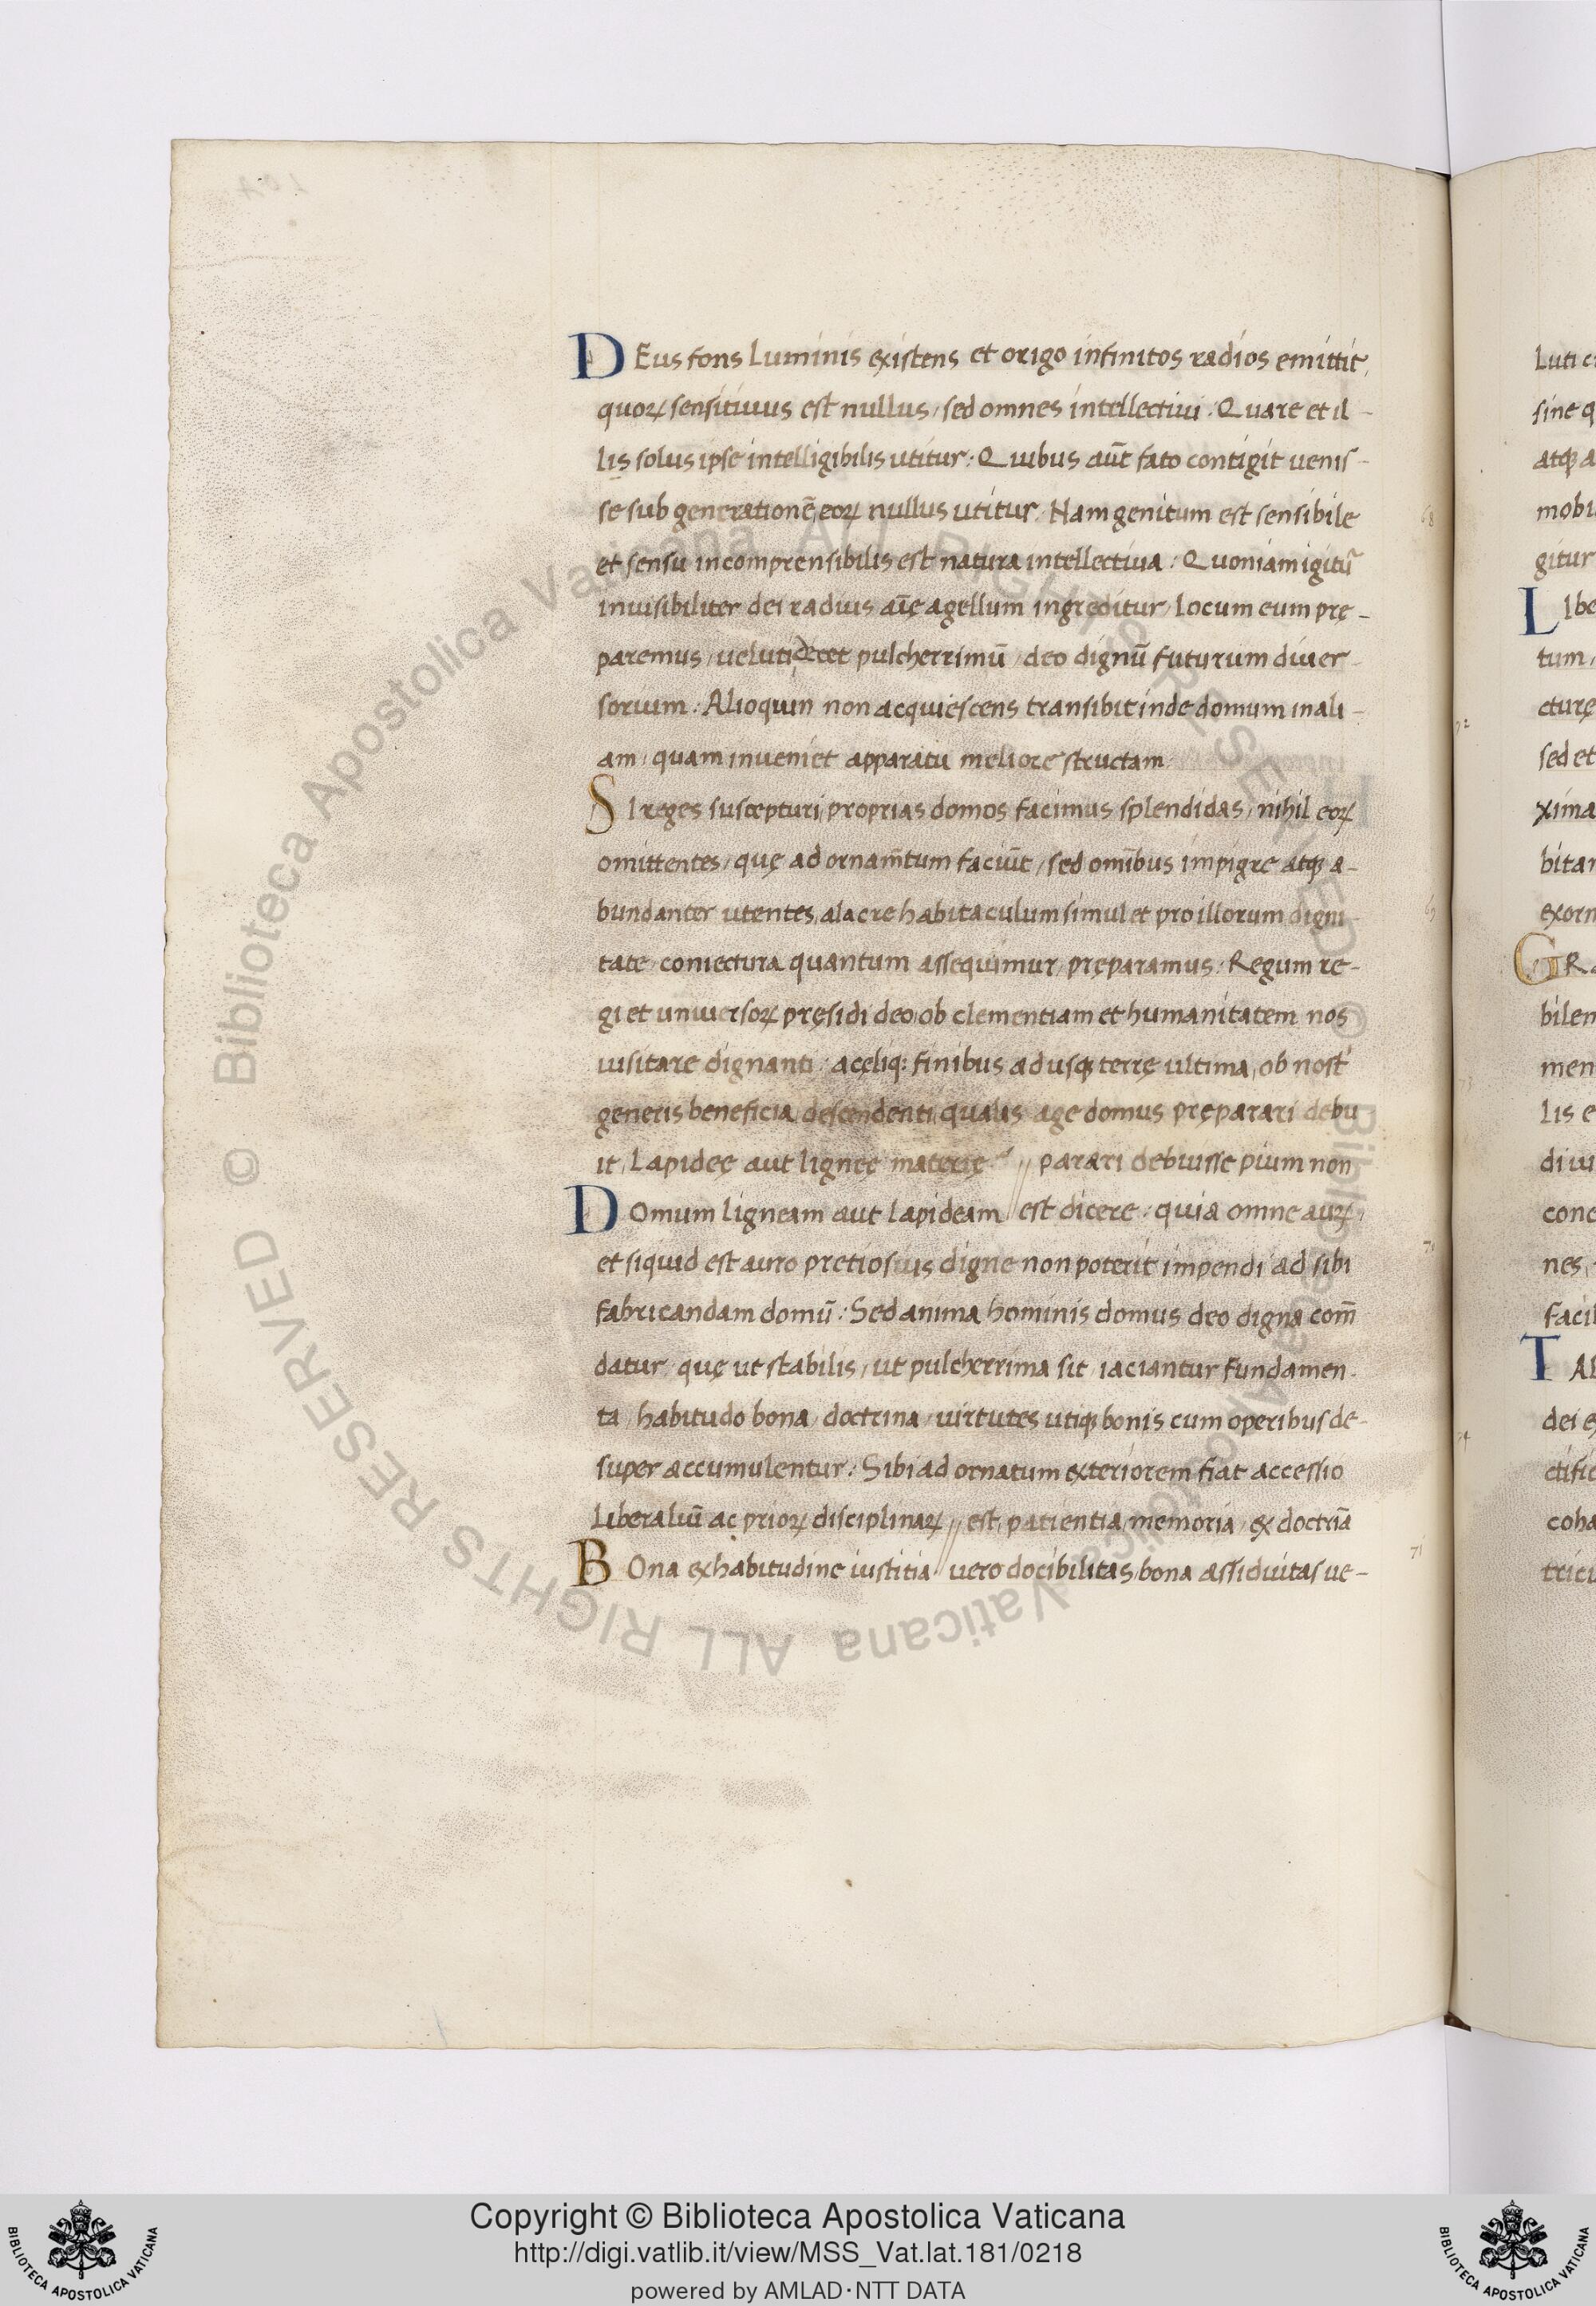 DEus fons Luminis existens et origo infinitos radios emittit,
quoꝝ sensitiuus est nullus, sed omnes intellectiui: Quare et il-
lis solus ipse intelligibilis utitur: Quibus aūt fato contigit uenis-
se sub generationē, eoꝝ nullus utitur. Nam genitum est sensibile
et sensu incomprensibilis est natura intellectiua: Quoniam igitū
inuisibiliter dei radius aīę agellum ingreditur, locum eum prę-
paremus, ueluti decet pulcherrimū, deo dignū futurum diuer-
sorium: Alioquin non acquiescens transibit inde domum in ali-
am, quam inueniet apparatu meliore structam
SI reges suscepturi, proprias domos facimus splendidas, nihil eoꝝ
omittentes, quę ad ornam̄tum faciūt, sed omībus impigre atqꝫ a-
bundanter utentes, alacre habitaculum simul et pro illorum digni-
tate coniectura quantum assequimur, pręparamus: Regum re-
gi et uniuersoꝝ pręsidi deo, ob clementiam et humanitatem nos
uisitare dignanti: a cęliqꝫ finibus ad usqꝫ terrę ultima, ob nost̄
generis beneficia descendenti, qualis age domus pręparari debu
it, Lapideę aut ligneę materię // parari debuisse pium non
DOmum ligneam aut lapideam // est dicere: quia omne auꝝ,
et siquid est auro pretiosius digne non poterit impendi ad sibi
fabricandam domū: Sed anima hominis domus deo digna com̄
datur, quę ut stabilis, ut pulcherrima sit, iaciantur fundamen-
ta, habitudo bona, doctrina, uirtutes utiqꝫ bonis cum operibus de-
super accumulentur: Sibi ad ornatum exteriorem fiat accessio
Liberaliū ac prioꝝ disciplinaꝝ // est, patientia, memoria, ex doctriā
BOna ex habitudine iustitia // uero docibilitas, bona assiduitas ue-
68
69
71
71
Luti c
sine q
atqꝫ a
mobi
gitur
LIbe
tum,
cturę
sed et
xima
bitar
exorn
GR
bilem
men
lis e
diui
conc
nes,
facil
TAb
dei e
ctific
coha
trici
72
73
74
Copyright © Biblioteca Apostolica Vaticana
http://digi.vatlib.it/view/MSS_Vat.lat.181/0218
powered by AMLAD·NTT DATA
BIBLIOTECA APOSTOLICA VATICANA
BIBLIOTECA APOSTOLICA VATICANA
© Biblioteca Apostolica Vaticana ALL RIGHTS RESERVED
© Biblioteca Apostolica Vaticana ALL RIGHTS RESERVED